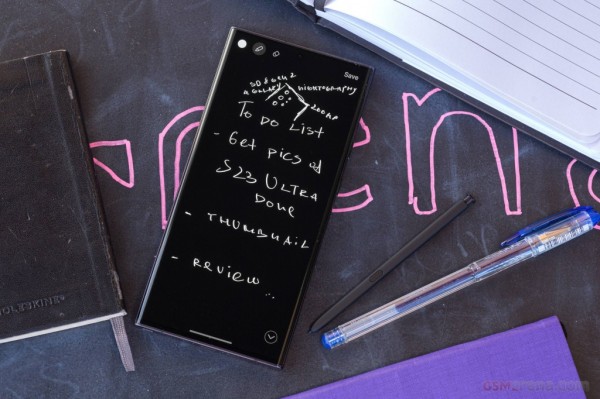 Save
SD 8 Gen 2
4 GALAXY
NIGHTOGRAPHY
200MP
To Do List
- Get pics of
S23 ULTRA
Done
- THUMBNAIL
- REVIEW...
MOLESKINE
GSMarena.com